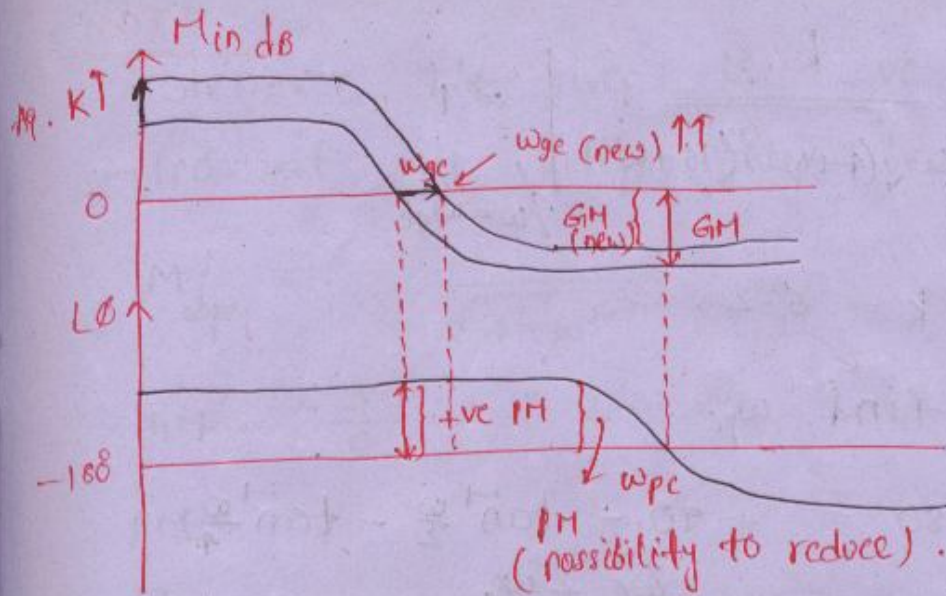 M in dB
K↑
wgc
wgc (new) ↑↑
0
GM (new)
GM
∠Ø
+ve PM
-180°
wpc
PM
(possibility to reduce).